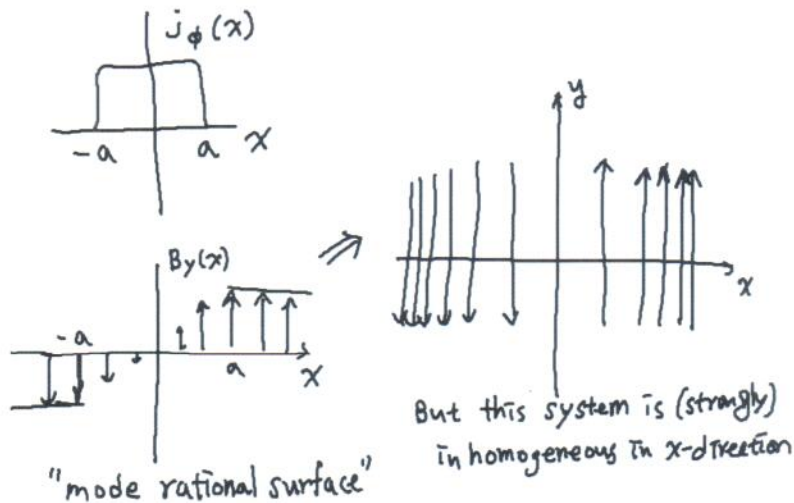 j_ϕ(x)
-a a x
By(x)
-a
a x
"mode rational surface"
y
x
But this system is (strongly)
inhomogeneous in x-direction